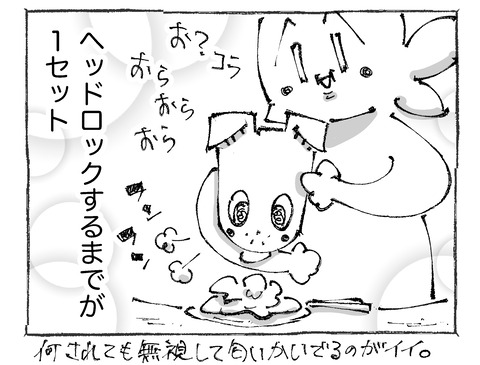 ヘッドロックするまでが
1セット
お?
コラ
おら
おら
おら
クンクン
何されても無視して匂いかいでるのがイイ。